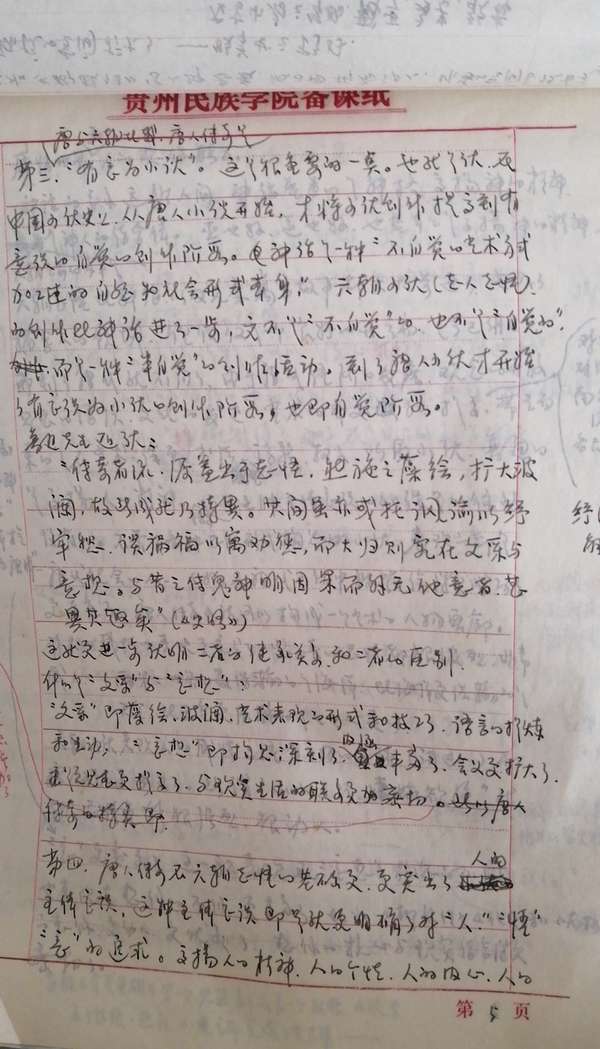 贵州民族学院备课纸
第三、“有意为小说”。这个很重要的一点。也就是说，在
中国小说史上，从唐人小说开始，才将小说创作提高到有
意识的自觉的创作阶段。如神话是一种“不自觉的艺术方式
加工过的自然和社会形式本身”，六朝小说（志人志怪）
的创作比神话进了一步，它不是“不自觉”的，也不是“自觉的”，
而是一种“半自觉”的创作活动。到了唐人小说才开始
了有意识为小说的创作阶段，也即自觉阶段。
鲁迅先生还说：
“传奇者流，源盖出于志怪，然施之藻绘，扩大波
澜，故所成就乃特异。其间虽亦或托讽喻以纾
牢愁，谈祸福以寓劝惩，而大归则究在文采与
意想。与昔之传鬼神明因果而外无他意者，甚
异其趣矣”
这就更进一步说明二者的继承关系和二者的区别。
什么是“文采”与“意想”：
“文采”即藻绘、波澜，艺术表现的形式和技巧，语言的锤炼
和生动；“意想”即构思深刻了，丰富了，含义更扩大了，
与现实生活的联系更加密切。
第四、唐人传奇在六朝志怪的基础上，更突出了人的
主体意识，这种主体意识即是说更明确了对“人”“情”
“意”的追求。宣扬人的精神、人的个性、人的内心、人的
第 5 页